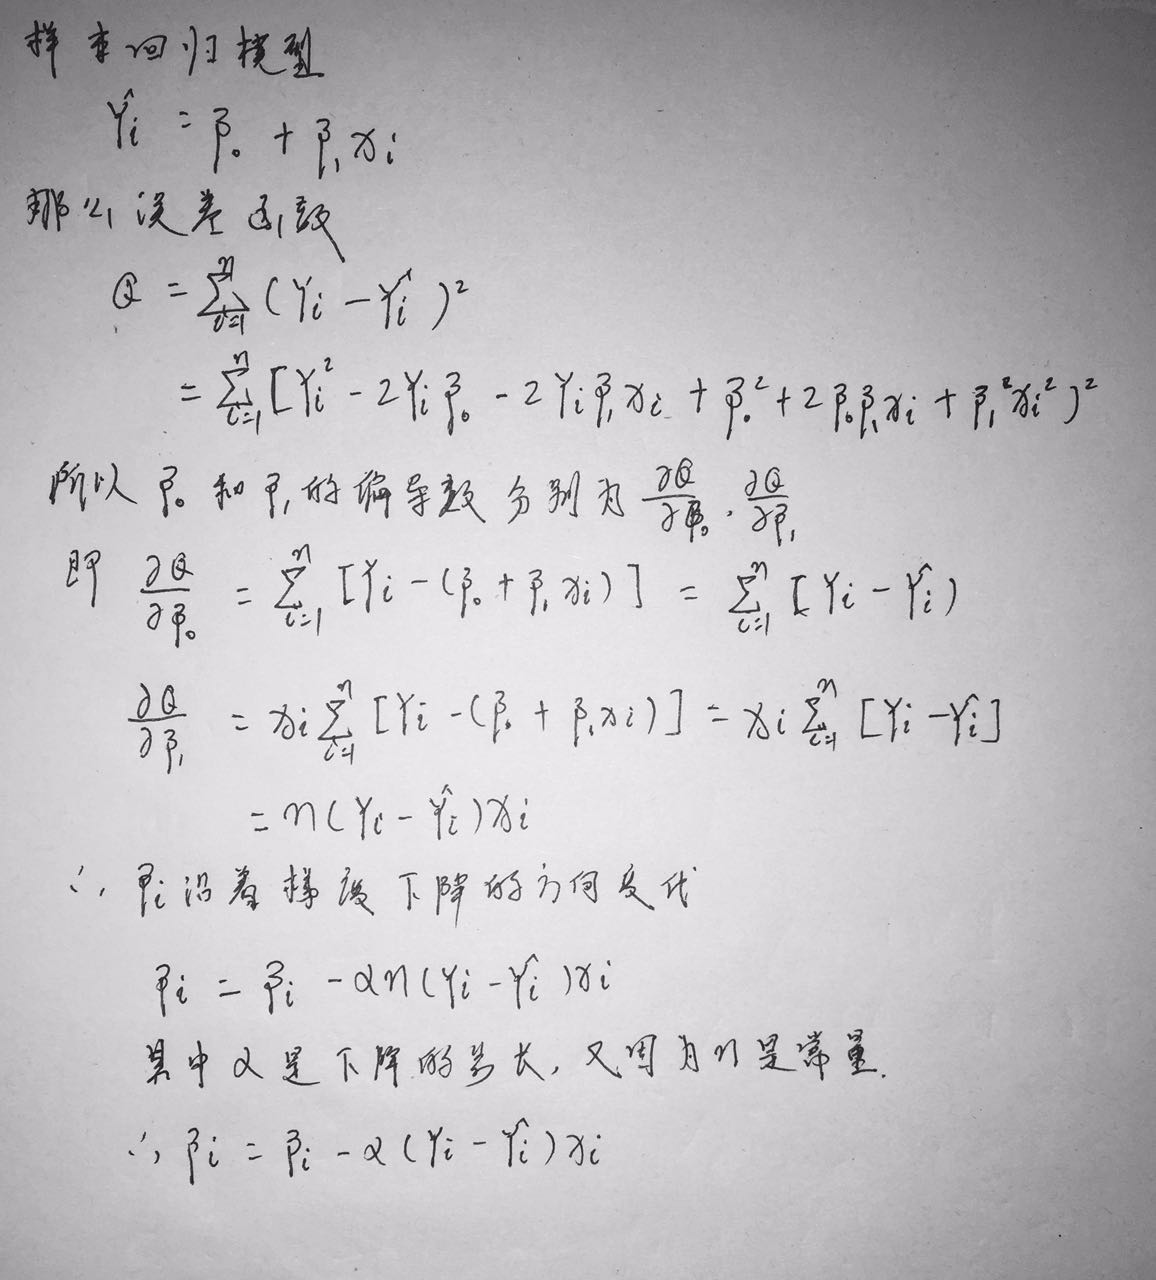 样本回归模型
Ŷi = β₀ + β₁xi
那么误差函数
Q = Σⁿᵢ₌₁ (Yi - Ŷi)²
= Σⁿᵢ₌₁ [Yi² - 2Yiβ₀ - 2Yiβ₁xi + β₀² + 2β₀β₁xi + β₁²xi²)²
所以 β₀ 和 β₁ 的偏导数分别为 ∂Q/∂β₀, ∂Q/∂β₁
即 ∂Q/∂β₀ = Σⁿᵢ₌₁ [Yi - (β₀ + β₁xi)] = Σⁿᵢ₌₁ [Yi - Ŷi)
∂Q/∂β₁ = xi Σⁿᵢ₌₁ [Yi - (β₀ + β₁xi)] = xi Σⁿᵢ₌₁ [Yi - Ŷi]
= n(Yi - Ŷi)xi
∴ βi沿着梯度下降的方向迭代
βi = βi - αn(Yi - Ŷi)xi
其中α是下降的步长, 又因为n是常量.
∴ βi = βi - α(Yi - Ŷi)xi